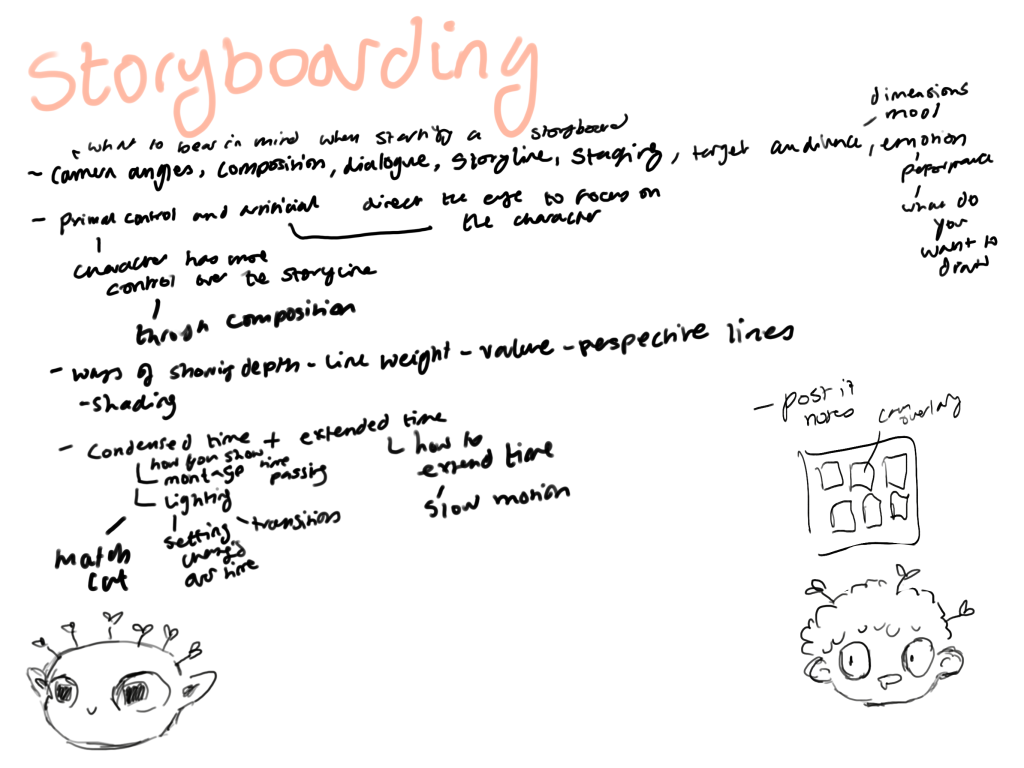 Storyboarding
what to bear in mind when starting a storyboard
~ Camera angles, composition, dialogue, storyline, staging, target audience, emotion
dimensions
mood
performance
what do
you
want to
draw
- primal control and artificial direct the eye to focus on
the character
character has more
control over the storyline
through composition
- ways of showing depth - line weight - value - perspective lines
- shading
- condensed time + extended time
how you show
montage time
passing
lighting
setting
changes
over time
transitions
match
cut
how to
extend time
slow motion
- post it
notes
can
overlay